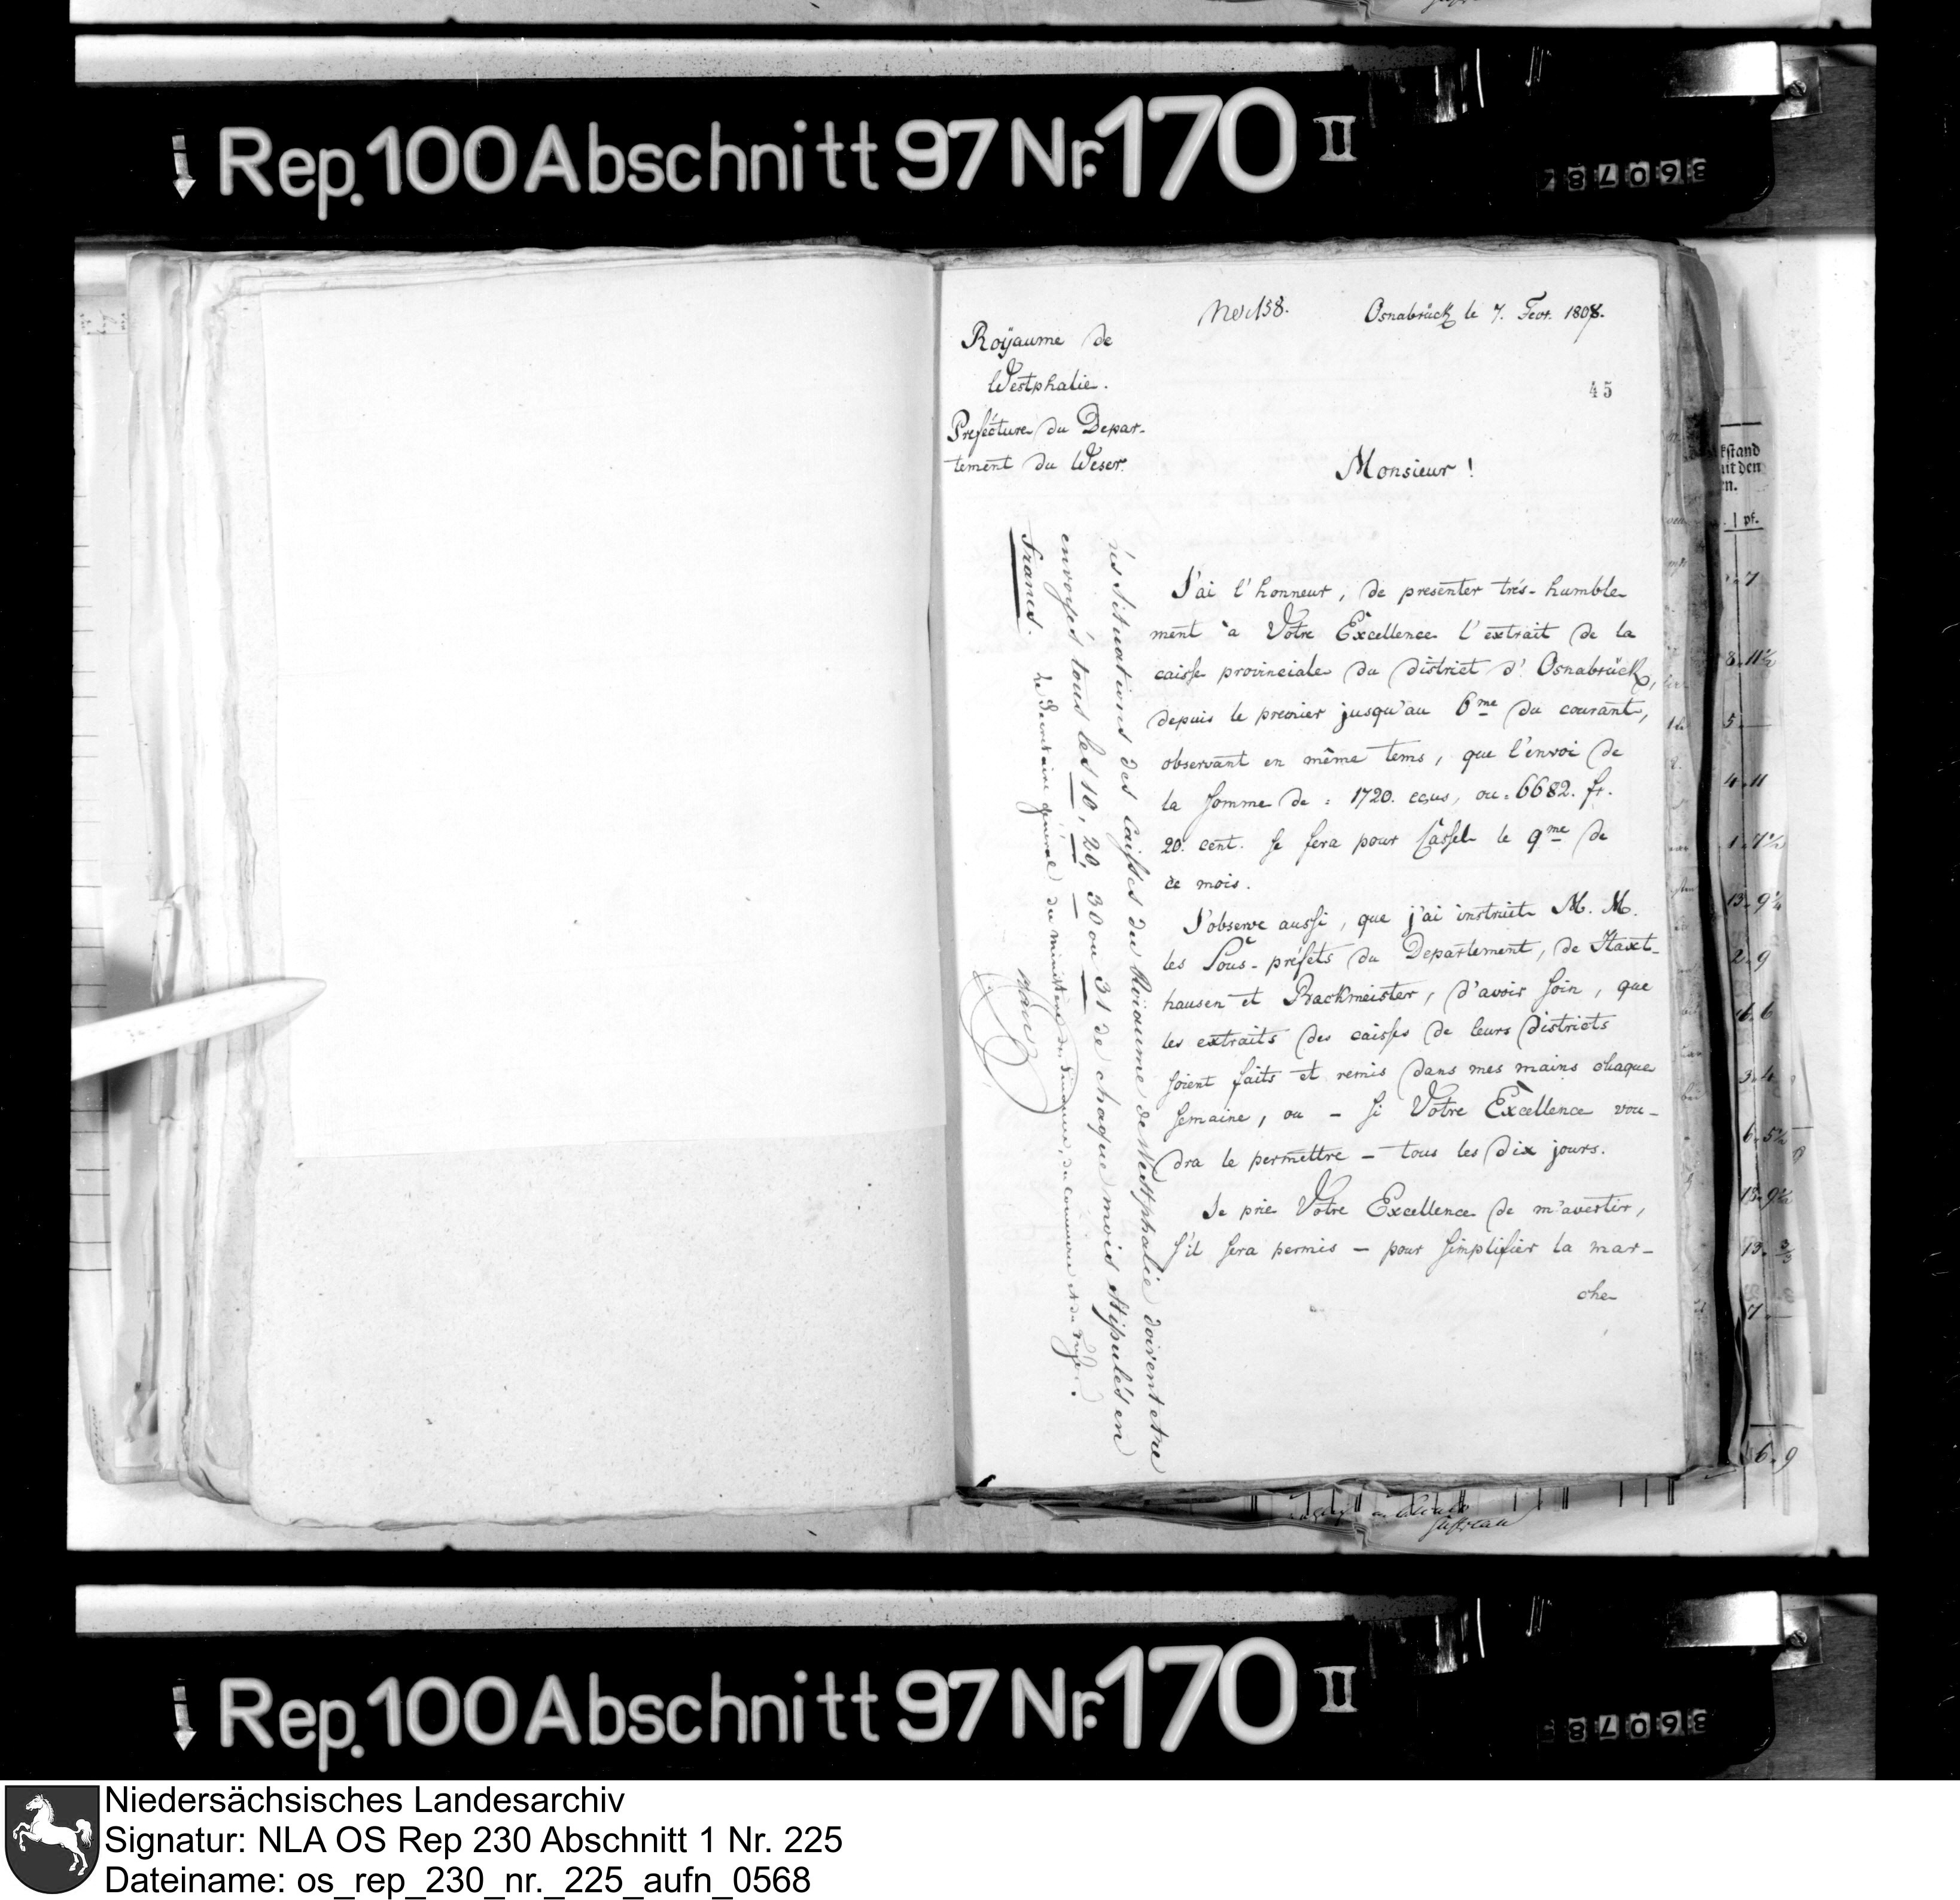 Rep. 100 Abschnitt 97 Nr. 170 II
No. 158.
Osnabrück le 7. Fevr. 1808.
Royaume de
Westphalie.
45
Prefécture du Depar-
tement du Weser.
Monsieur !
J'ai l'honneur, de presenter trés-humble-
ment à Votre Excellence l'extrait de la
caisse provinciale du district d'Osnabrück,
depuis le premier jusqu'au 6me du courant,
observant en même tems, que l'envoi de
la somme de : 1720. ecus, ou : 6682. fr.
20. cent. se fera pour Cassel le 9me de
ce mois.
J'observe aussi, que j'ai instruit M. M.
les Sous-préfets du Departement, de Haxt-
hausen et Backmeister, d'avoir soin, que
les extraits des caisses de leurs districts
soient faits et remis dans mes mains chaque
semaine, ou – si Votre Excellence vou-
dra le permettre – tous les dix jours.
Je prie Votre Excellence de m'avertir,
s'il sera permis – pour simplifier la mar-
che
les situations des Caisses du Roiaume de Westphalie doivent etre
envoyés tous les 10, 20, 30 ou 31 de chaque mois stipulés en
francs.
Le Secretaire général du ministere des finances, du commerce et du
Rep. 100 Abschnitt 97 Nr. 170 II
Niedersächsisches Landesarchiv
Signatur: NLA OS Rep 230 Abschnitt 1 Nr. 225
Dateiname: os_rep_230_nr._225_aufn_0568